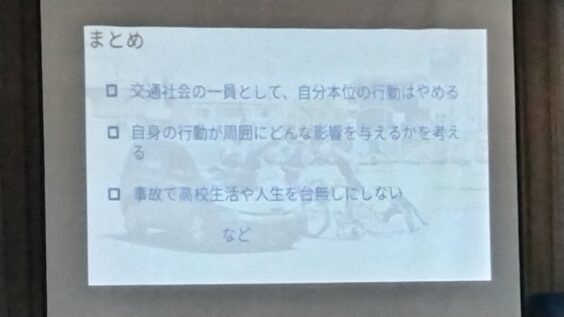 まとめ
交通社会の一員として、自分本位の行動はやめる
自身の行動が周囲にどんな影響を与えるかを考え
る
事故で高校生活や人生を台無しにしない
など